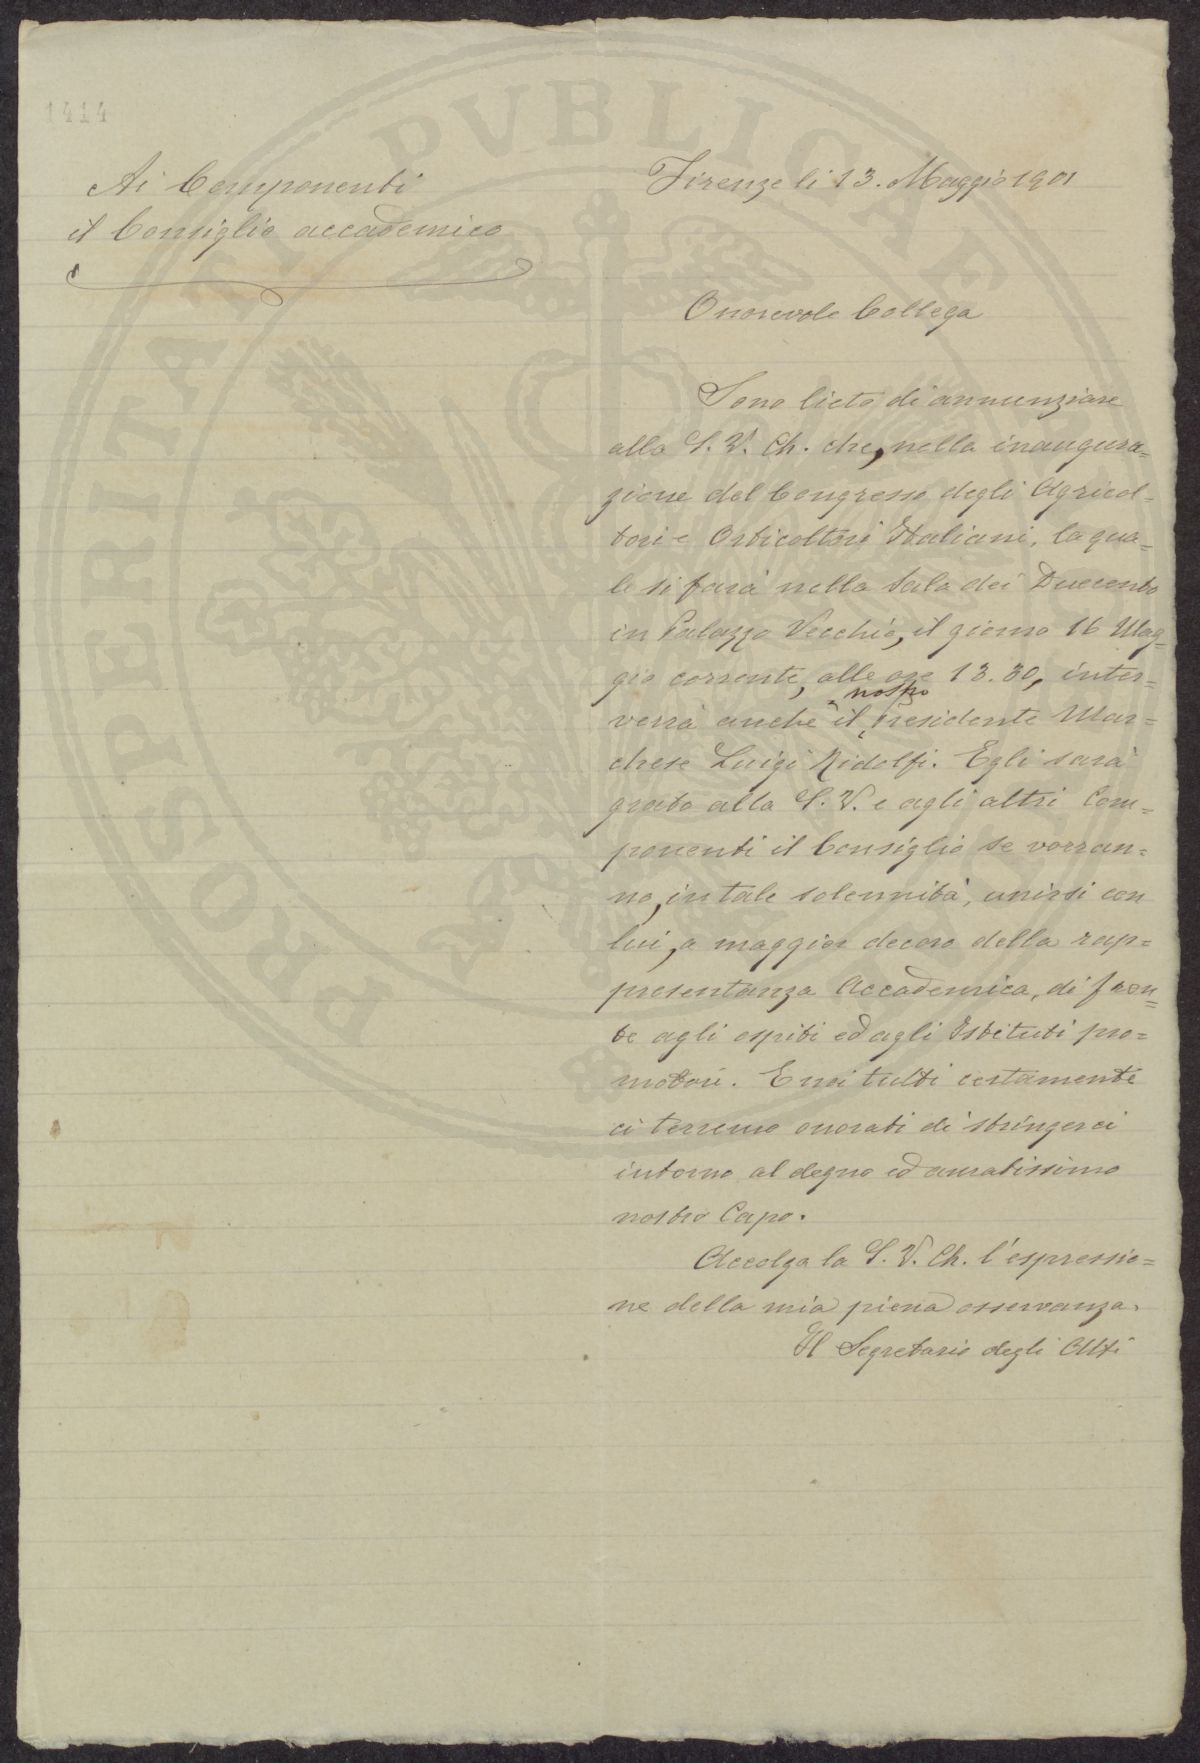 1414
Ai Componenti
il Consiglio accademico
Firenze li 13. Maggio 1901
Onorevole Collega
Sono lieto di annunziare
alla S. V. Ch. che, nella inaugura=
zione del Congresso degli Agricol=
tori e Orticoltori Italiani, la qua=
le si farà nella Sala dei Duecento
in Palazzo Vecchio, il giorno 16 Mag=
gio corrente, alle ore 13.30, inter=
nostro
verrà anche il Presidente Mar=
chese Luigi Ridolfi. Egli sarà
grato alla S. V. e agli altri Com=
ponenti il Consiglio se vorran=
no, in tale solennità, unirsi con
lui, a maggior decoro della rap=
presentanza Accademica, di fron=
te agli ospiti ed agli Istituti pro=
motori. E noi tutti certamente
ci terremo onorati di stringerci
intorno al degno ed amatissimo
nostro Capo.
Accolga la S. V. Ch. l'espressio=
ne della mia piena osservanza.
Il Segretario degli Atti
PROSPERITATI PVBLICAE